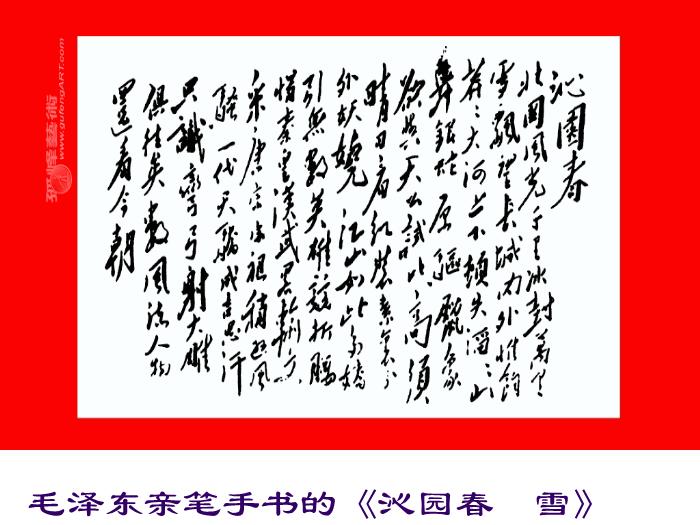 沁園春
北國風光千里冰封萬里
雪飄望長城内外惟餘
莽〻大河上下頓失滔〻山
舞銀蛇原驅臘象
欲與天公試比高須
晴日看紅裝素裹分
外妖嬈江山如此多嬌
引無數英雄競折腰
惜秦皇漢武略輸文
采唐宗宋祖稍遜風
騷一代天驕成吉思汗
只識彎弓射大雕
俱往矣數風流人物
還看今朝
www.gufengART.com
毛泽东亲笔手书的《沁园春 雪》